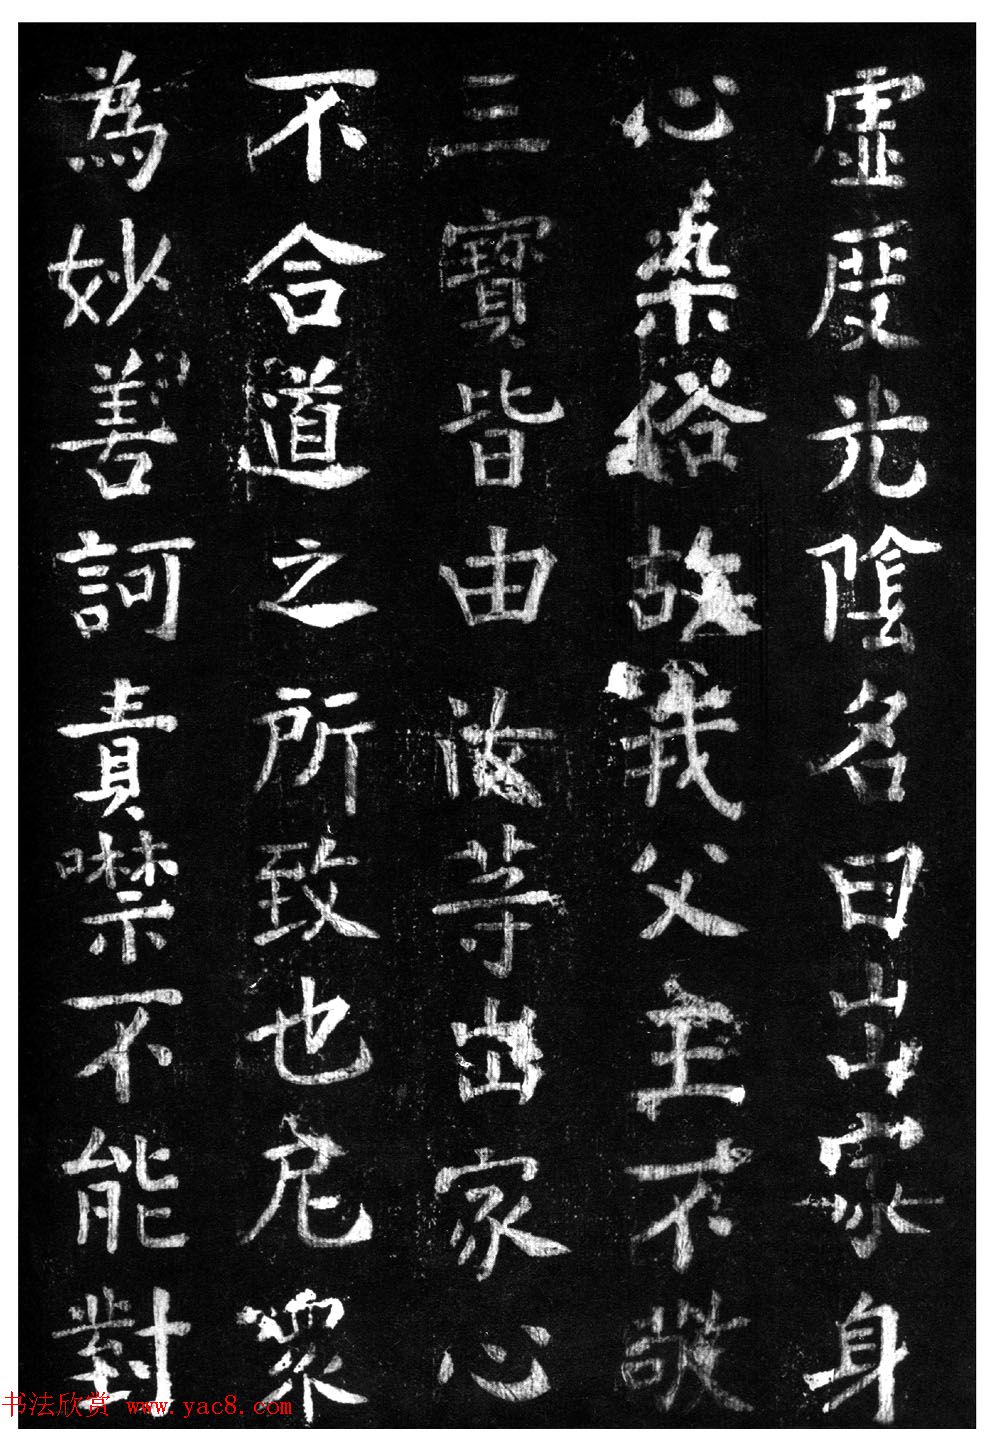 虛度光陰名曰出家身
心染俗故我父主不敬
三寶皆由汝等出家心
不合道之所致也尼衆
為妙善訶責噤不能對
书法欣赏 www.yac8.com